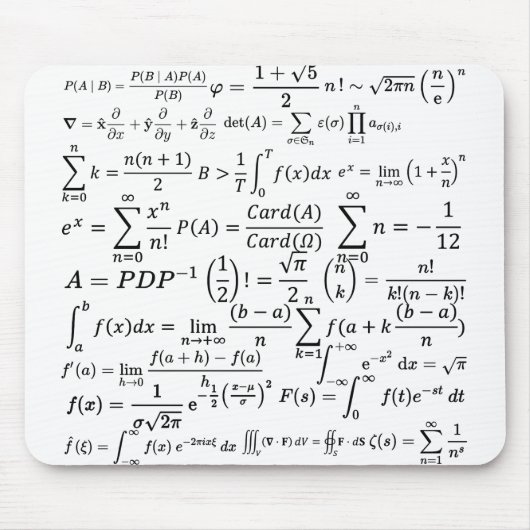 P(A | B) = P(B | A)P(A) / P(B)   φ = (1 + √5) / 2   n! ~ √(2πn) (n/e)^n
∇ = x̂ ∂/∂x + ŷ ∂/∂y + ẑ ∂/∂z   det(A) = ∑_{σ∈𝔖_n} ε(σ) ∏_{i=1}^{n} a_{σ(i),i}
∑_{k=0}^{n} k = n(n + 1) / 2   B > 1/T ∫_0^T f(x)dx   e^x = lim_{n→∞} (1 + x/n)^n
e^x = ∑_{n=0}^{∞} x^n / n!   P(A) = Card(A) / Card(Ω)   ∑_{n=0}^{∞} n = − 1/12
A = PDP^{−1}   (1/2)! = √π / 2   (n k) = n! / k!(n − k)!
∫_a^b f(x)dx = lim_{n→+∞} (b − a)/n ∑_{k=1}^{n} f(a + k (b − a)/n)
f′(a) = lim_{h→0} (f(a + h) − f(a)) / h   ∫_{−∞}^{+∞} e^{−x^2} dx = √π
f(x) = 1 / (σ√(2π)) e^{−1/2 ((x−μ)/σ)^2}   F(s) = ∫_0^∞ f(t)e^{−st} dt
f̂(ξ) = ∫_{−∞}^{∞} f(x) e^{−2πixξ} dx   ∭_V (∇ · F) dV = ∯_S F · dS   ζ(s) = ∑_{n=1}^{∞} 1/n^s